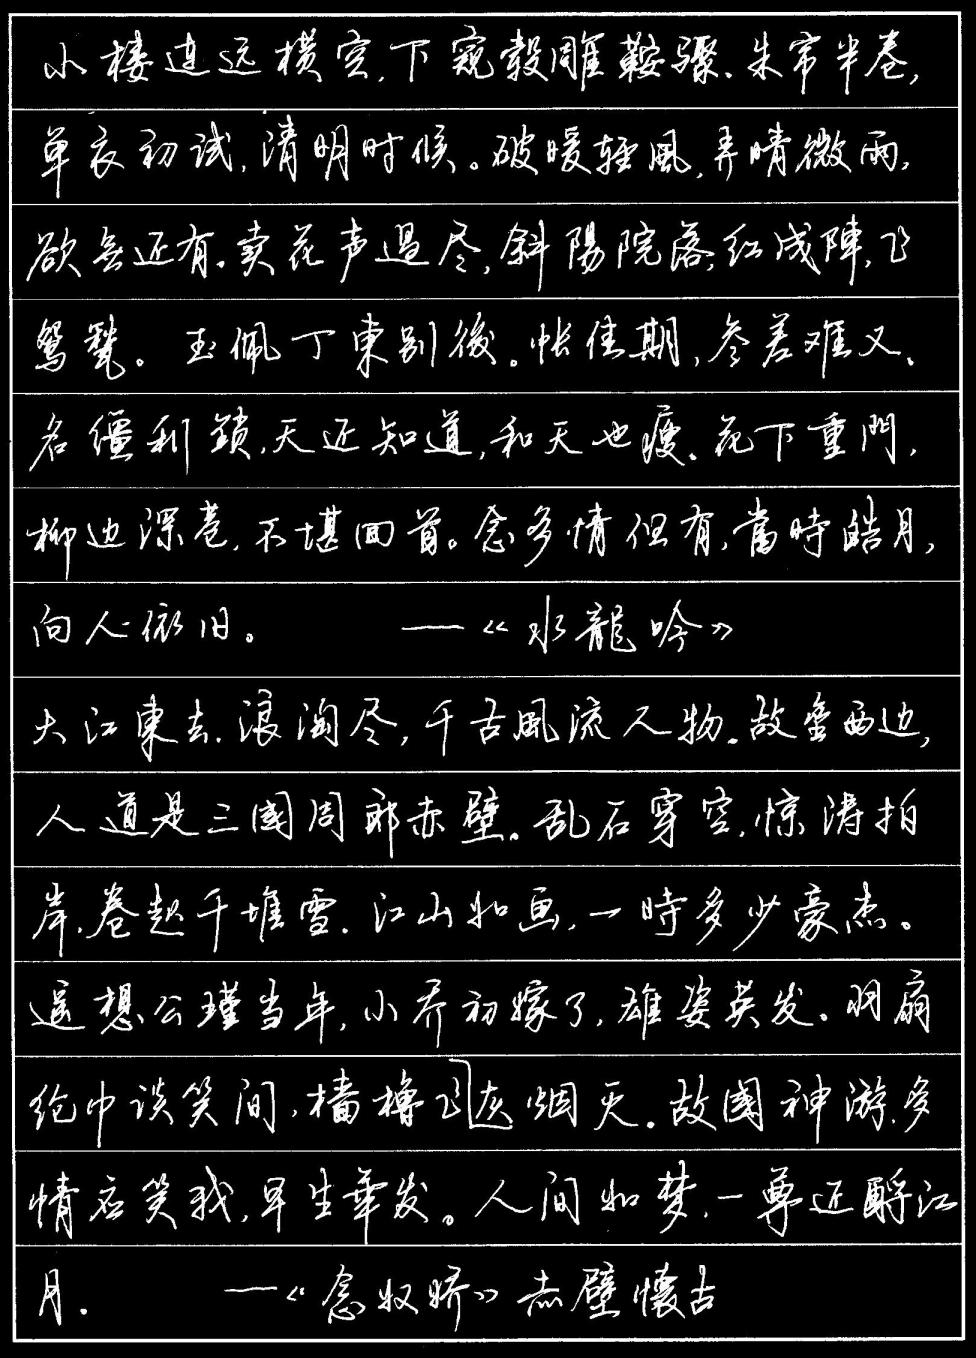 小楼连远横空,下窥毂雕鞍骤.朱帘半卷,
单衣初试,清明时候。破暖轻風,弄晴微雨,
欲無还有.卖花声過尽,斜陽院落,红成陣,飞
鴛甃。玉佩丁東别後。怅佳期,参差难又、
名缰利鎖,天还知道,和天也瘦.花下重門,
柳边深巷,不堪回首。念多情但有,當時皓月,
向人依旧。——《水龍吟》
大江東去.浪淘尽,千古風流人物.故垒西边,
人道是三國周郎赤壁。乱石穿空,惊涛拍
岸,卷起千堆雪.江山如画,一時多少豪杰。
遥想公瑾当年,小乔初嫁了,雄姿英发.羽扇
纶巾谈笑间,樯橹飞灰烟灭.故國神游.多
情应笑我,早生華发。人间如梦,一尊还酹江
月.——《念奴娇》赤壁懷古